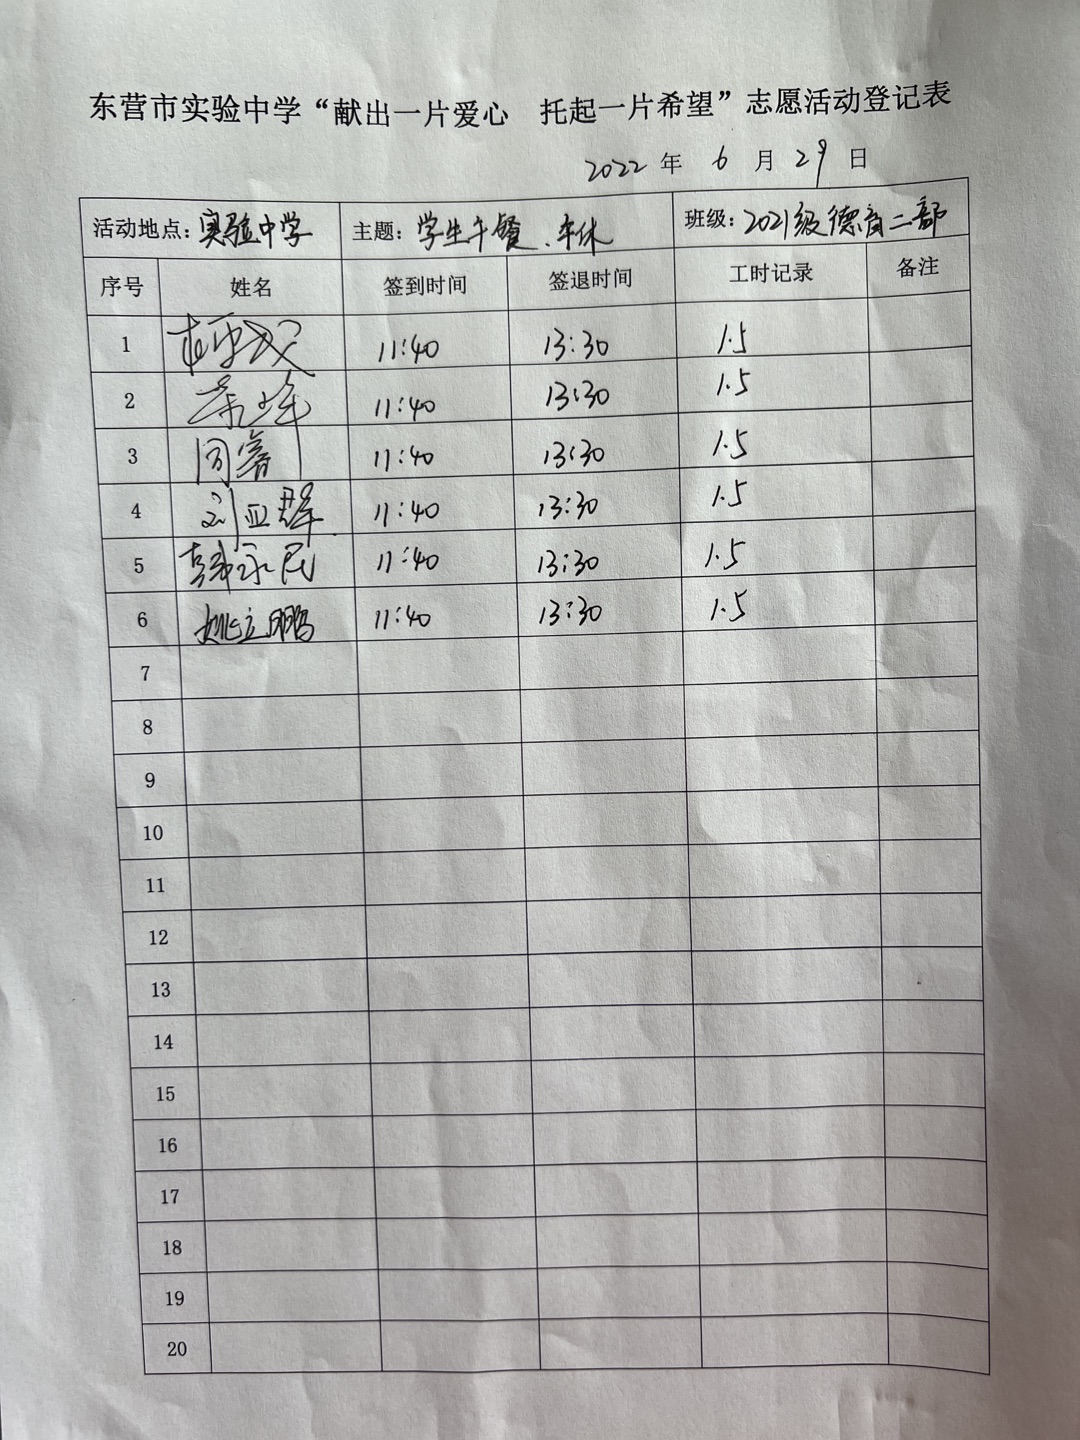 东营市实验中学“献出一片爱心 托起一片希望”志愿活动登记表
2022 年 6 月 29 日
活动地点：实验中学 主题：学生午餐、午休 班级：2021级德育二部
序号 姓名 签到时间 签退时间 工时记录 备注
1 11:40 13:30 1.5
2 11:40 13:30 1.5
3 11:40 13:30 1.5
4 刘亚群 11:40 13:30 1.5
5 韩永民 11:40 13:30 1.5
6 姚立鹏 11:40 13:30 1.5
7
8
9
10
11
12
13
14
15
16
17
18
19
20